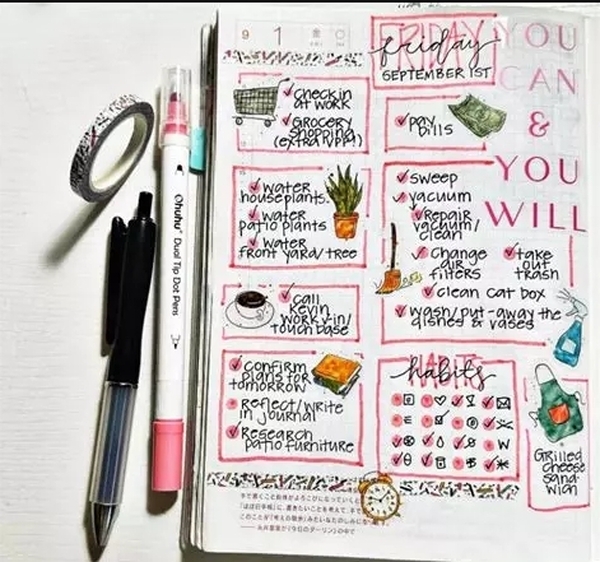 9 1 金
FRIDAY
friday
SEPTEMBER 1ST
YOU
CAN
&
YOU
WILL
check in
at work
Grocery
shopping
(extra TVPP!)
pay
bills
water
houseplants
water
patio plants
water
front yard/tree
sweep
vacuum
Repair
vacuum/
clean
change
air
filters
take
out
trash
clean cat box
wash/put-away the
dishes & vases
call
Kevin
work v-in/
touch base
confirm
plans for
tomorrow
Reflect/write
in journal
Research
patio furniture
HABITS
habits
W
Grilled
cheese
sand-
wich
Ohuhu Dual Tip Dot Pens